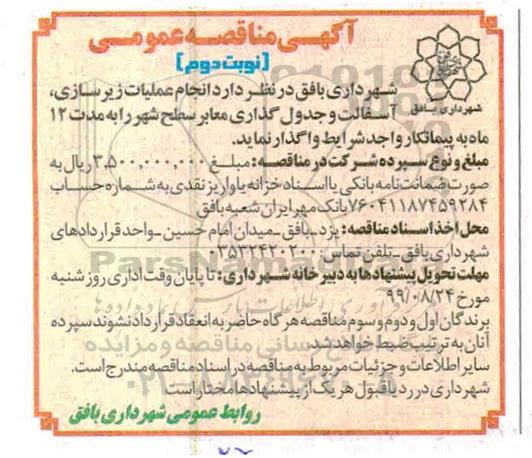 آگهی مناقصه عمومی
(نوبت دوم)
شهرداری بافق
شهرداری بافق در نظر دارد انجام عملیات زیرسازی،
آسفالت و جدول گذاری معابر سطح شهر را به مدت ۱۲
ماه به پیمانکار واجد شرایط واگذار نماید.
مبلغ و نوع سپرده شرکت در مناقصه: مبلغ ۳.۵۰۰,۰۰۰,۰۰۰ ریال به
صورت ضمانت نامه بانکی یا اسناد خزانه یا واریز نقدی به شماره حساب
۷۶۰۴۱۱۸۷۴۵۹۲۸۴ بانک مهر ایران شعبه بافق
محل اخذ اسناد مناقصه: یزد_بافق_میدان امام حسین_واحد قراردادهای
شهرداری بافق_تلفن تماس: ۰۳۵۳۲۴۲۰۲۰۰
مهلت تحویل پیشنهادها به دبیرخانه شهرداری: تا پایان وقت اداری روز شنبه
مورخ ۹۹/۰۸/۲۴
برندگان اول و دوم و سوم مناقصه هرگاه حاضر به انعقاد قرارداد نشوند سپرده
آنان به ترتیب ضبط خواهد شد.
سایر اطلاعات و جزئیات مربوط به مناقصه در اسناد مناقصه مندرج است.
شهرداری در رد یا قبول هر یک از پیشنهادها مختار است
روابط عمومی شهرداری بافق